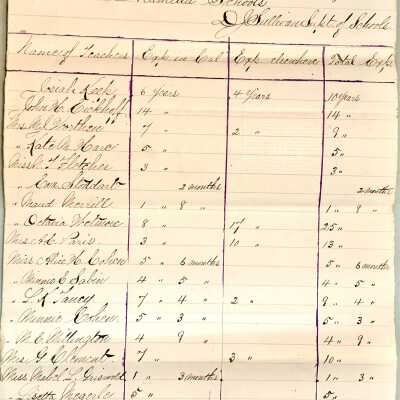 Schools
D J Sullivan Supt of Schools
Name of Teachers Exp in Cal Exp elsewhere Total Exp
Josiah Keep 6 Years 4 Years 10 Years
John H. Eickhoff 14 " 14 "
Mrs M J Worthen 7 " 2 " 9 "
" Kate A. Hare 5 " 5 "
Miss A. F Fletcher 3 " 3 "
" Eva Stoddart 2 months 2 months
" Maud Merrill 1 " 8 " 1 " 8 "
" Octavia Wetmore 8 " 17 " 25 "
Mrs A C Paris 3 " 10 " 13 "
Miss Alice H. Cohen 5 " 6 months 5 " 6 months
" Minnie E Sabin 4 " 5 " 4 " 5 "
" L K Tancy 7 " 4 " 2 " 9 " 4 "
" Minnie Cohen 5 " 3 " 5 " 3 "
" M E Millington 4 9 " 4 " 9 "
Mrs G Clement 7 " 3 " 10 "
Miss Mabel L. Griswold 1 " 3 months 1 " 3 "
" Lisette Megerle 5 " 5 "